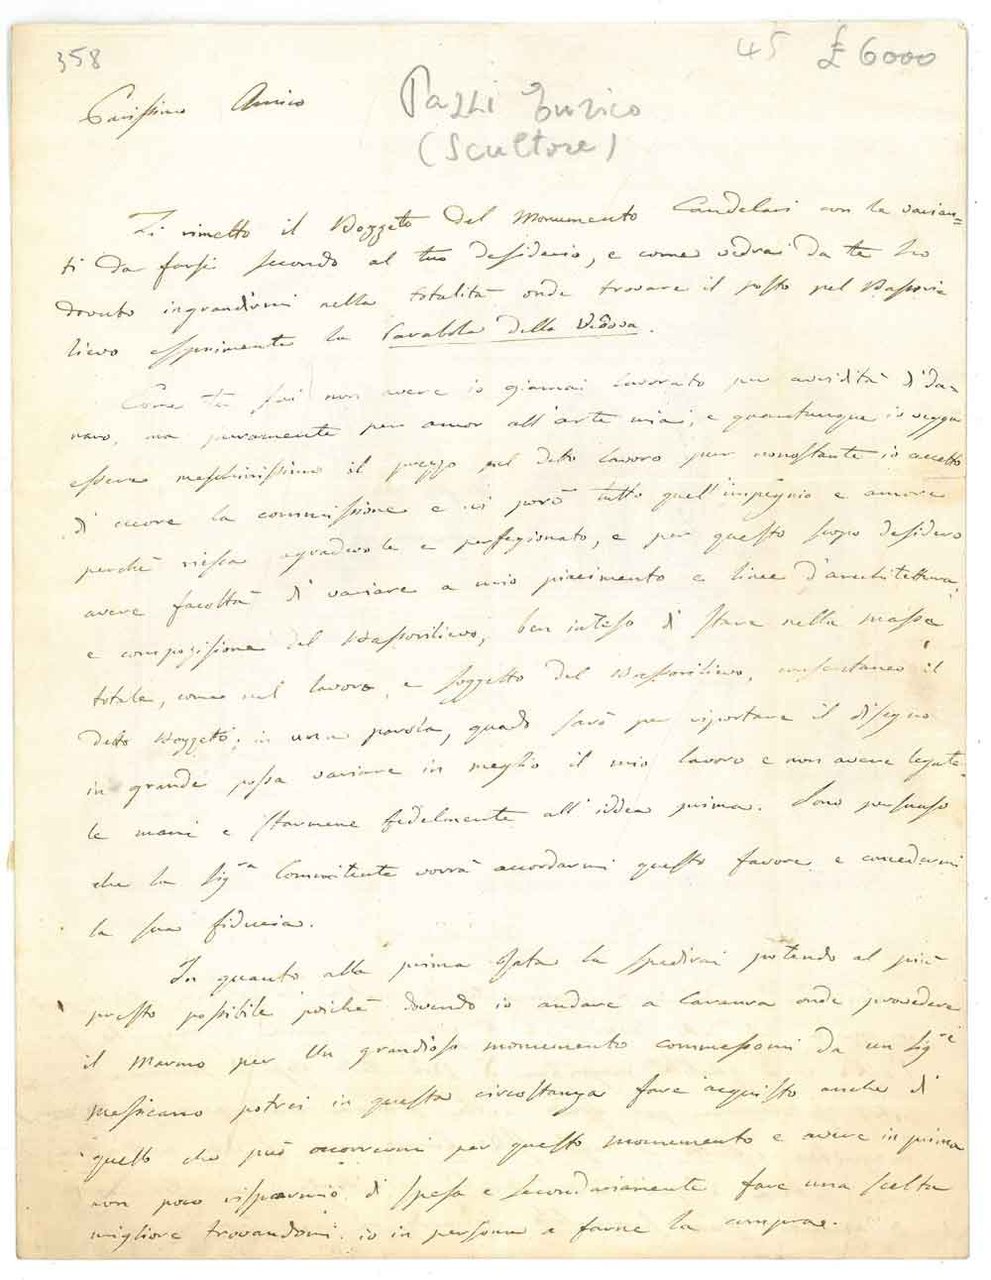 358
45 £ 6000
Pazzi Enrico
(Scultore)
Carissimo Amico
Ti rimetto il Bozzetto del Monumento Candelari con la varian=
ti da farsi secondo al tuo desiderio, e come vedrai da te ho
dovuto ingrandirmi nella totalità onde trovare il posto pel Bassori=
lievo esprimente la Parabola della Vedova.
Come tu sai non avere io giammai lavorato per avidità d'da=
naro, ma puramente per amor all'arte mia, e quantunque io vegga
essere meschinissimo il prezzo pel detto lavoro pur nonostante io accetto
di cuore la commissione e ci porrò tutto quell'impegnio e amore
perchè riesca agradevole e perfezionato, e per questo scopo desidero
avere facoltà di variare a mio piacimento e linee d'architettura,
e composizione del Bassorilievo, ben inteso di stare nella massa
totale, come nel lavoro, e soggetto del Bassorilievo, consentaneo il
detto Bozzetto; in una parola, quado sarò per riportare il disegno
in grande possa variare in meglio il mio lavoro e non avere legate
le mani e starmene fedelmente all'iddea prima. Sono persuaso
che la Sig.ra Committente vorrà accordarmi questo favore e concedermi
la sua fiducia.
In quanto alla prima rata la spedirai potendo al più
presto possibile poichè dovendo io andare a Caraura onde provedere
il Marmo per un grandioso monemento commessomi da un Sig.re
messicano potrei in questa circostanza fare acquisto anche di
quello che può ocorrermi per questo monemento e avere in prima
non poco risparmio di spesa e secondariamente fare una scelta
migliore trovandomi io in persona a farne la compra.